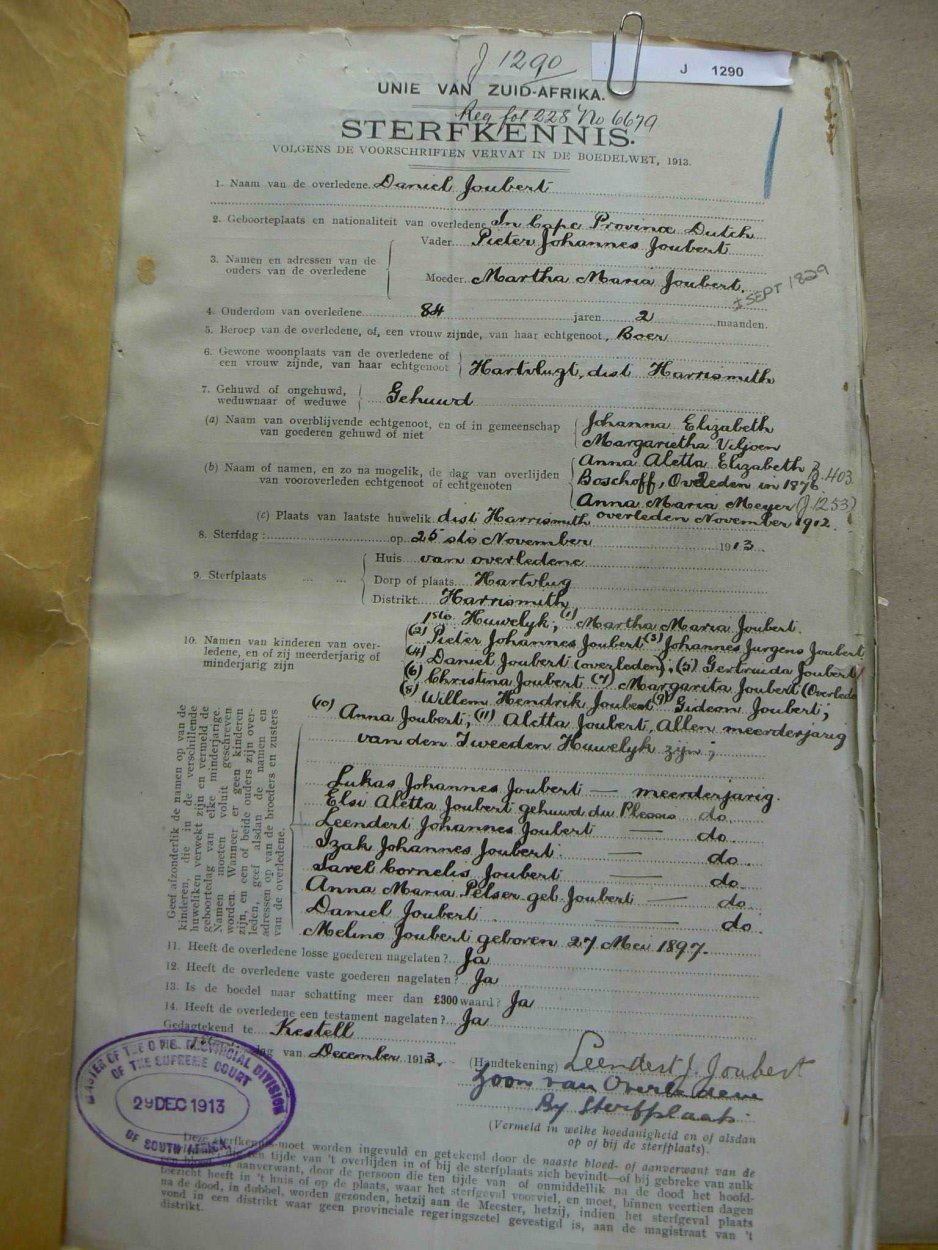 J 1290
J 1290
UNIE VAN ZUID-AFRIKA.
Reg fol 228 No 6679
STERFKENNIS.
VOLGENS DE VOORSCHRIFTEN VERVAT IN DE BOEDELWET, 1913.
1. Naam van de overledene Daniel Joubert
2. Geboorteplaats en nationaliteit van overledene In Cape Province Dutch
3. Namen en adressen van de ouders van de overledene
Vader Pieter Johannes Joubert
Moeder Martha Maria Joubert.
± SEPT 1829
4. Ouderdom van overledene 84 jaren 2 maanden.
5. Beroep van de overledene, of, een vrouw zijnde, van haar echtgenoot, Boer
6. Gewone woonplaats van de overledene of
een vrouw zijnde, van haar echtgenoot Hartvlugt, dist Harrismith
7. Gehuwd of ongehuwd,
weduwnaar of weduwe Gehuurd
(a) Naam van overblijvende echtgenoot, en of in gemeenschap
van goederen gehuwd of niet
Johanna Elizabeth
Margarietha Viljoen
(b) Naam of namen, en zo na mogelik, de dag van overlijden
van vooroverleden echtgenoot of echtgenoten
Anna Aletta Elizabeth
Boschoff, Overleden in 1876 J.403.
Anna Maria Meyer (J.1253)
(c) Plaats van laatste huwelik. dist Harrismith overleden November 1912.
8. Sterfdag: op 25 ste November 1913
9. Sterfplaats
Huis van overledene
Dorp of plaats Hartvlug
Distrikt Harrismith
10. Namen van kinderen van over-
ledene, en of zij meerderjarig of
minderjarig zijn
1ste Huwelyk; (1) Martha Maria Joubert.
(2) Pieter Johannes Joubert (3) Johannes Jurgens Joubert
(4) Daniel Joubert (overleden); (5) Gertruida Joubert
(6) Christina Joubert (7) Margarita Joubert (Overlede
(8) Willem Hendrik Joubert (9) Gideon Joubert;
(10) Anna Joubert; (11) Aletta Joubert, Allen meerderjarig
van den Tweeden Huwelyk zyn;
Geef afzonderlik de namen op van de
kinderen, die in de verschillende
huweliken verwekt zijn en vermeld de
geboortedag van elke minderjarige.
Namen moeten voluit geschreven
worden. Wanneer er geen kinderen
zijn, en een of beide ouders zijn over-
leden, geef alsdan de namen en
adressen op van de broeders en zusters
van de overledene.
Lukas Johannes Joubert — meerderjarig.
Elsi Aletta Joubert gehuwd du Plessis do.
Leendert Johannes Joubert — do.
Izak Johannes Joubert. — do.
Sarel Cornelis Joubert — do.
Anna Maria Pelser geb Joubert — do.
Daniel Joubert do.
Melino Joubert geboren 27 Mei 1897.
11. Heeft de overledene losse goederen nagelaten? Ja
12. Heeft de overledene vaste goederen nagelaten? Ja
13. Is de boedel naar schatting meer dan £300 waard? Ja
14. Heeft de overledene een testament nagelaten? Ja
Gedagtekend te Kestell
dag van December 1913.
(Handtekening) Leendert J. Joubert
Zoon van Overledene
By Sterfplaats
(Vermeld in welke hoedanigheid en of alsdan
op of bij de sterfplaats).
MASTER OF THE O.F.S. PROVINCIAL DIVISION
OF THE SUPREME COURT
29 DEC 1913
OF SOUTH AFRICA.
Deze sterfkennis moet worden ingevuld en getekend door de naaste bloed- of aanverwant van de
die ten tijde van 't overlijden in of bij de sterfplaats zich bevindt—of bij gebreke van zulk
een bloed- of aanverwant, door de persoon die ten tijde van of onmiddellik na de dood het hoofd-
toezicht heeft in 't huis of op de plaats, waar het sterfgeval voorviel, en moet, binnen veertien dagen
na de dood, in dubbel, worden gezonden, hetzij aan de Meester, hetzij, indien het sterfgeval plaats
vond in een distrikt waar geen provinciale regeringszetel gevestigd is, aan de magistraat van 't
distrikt.